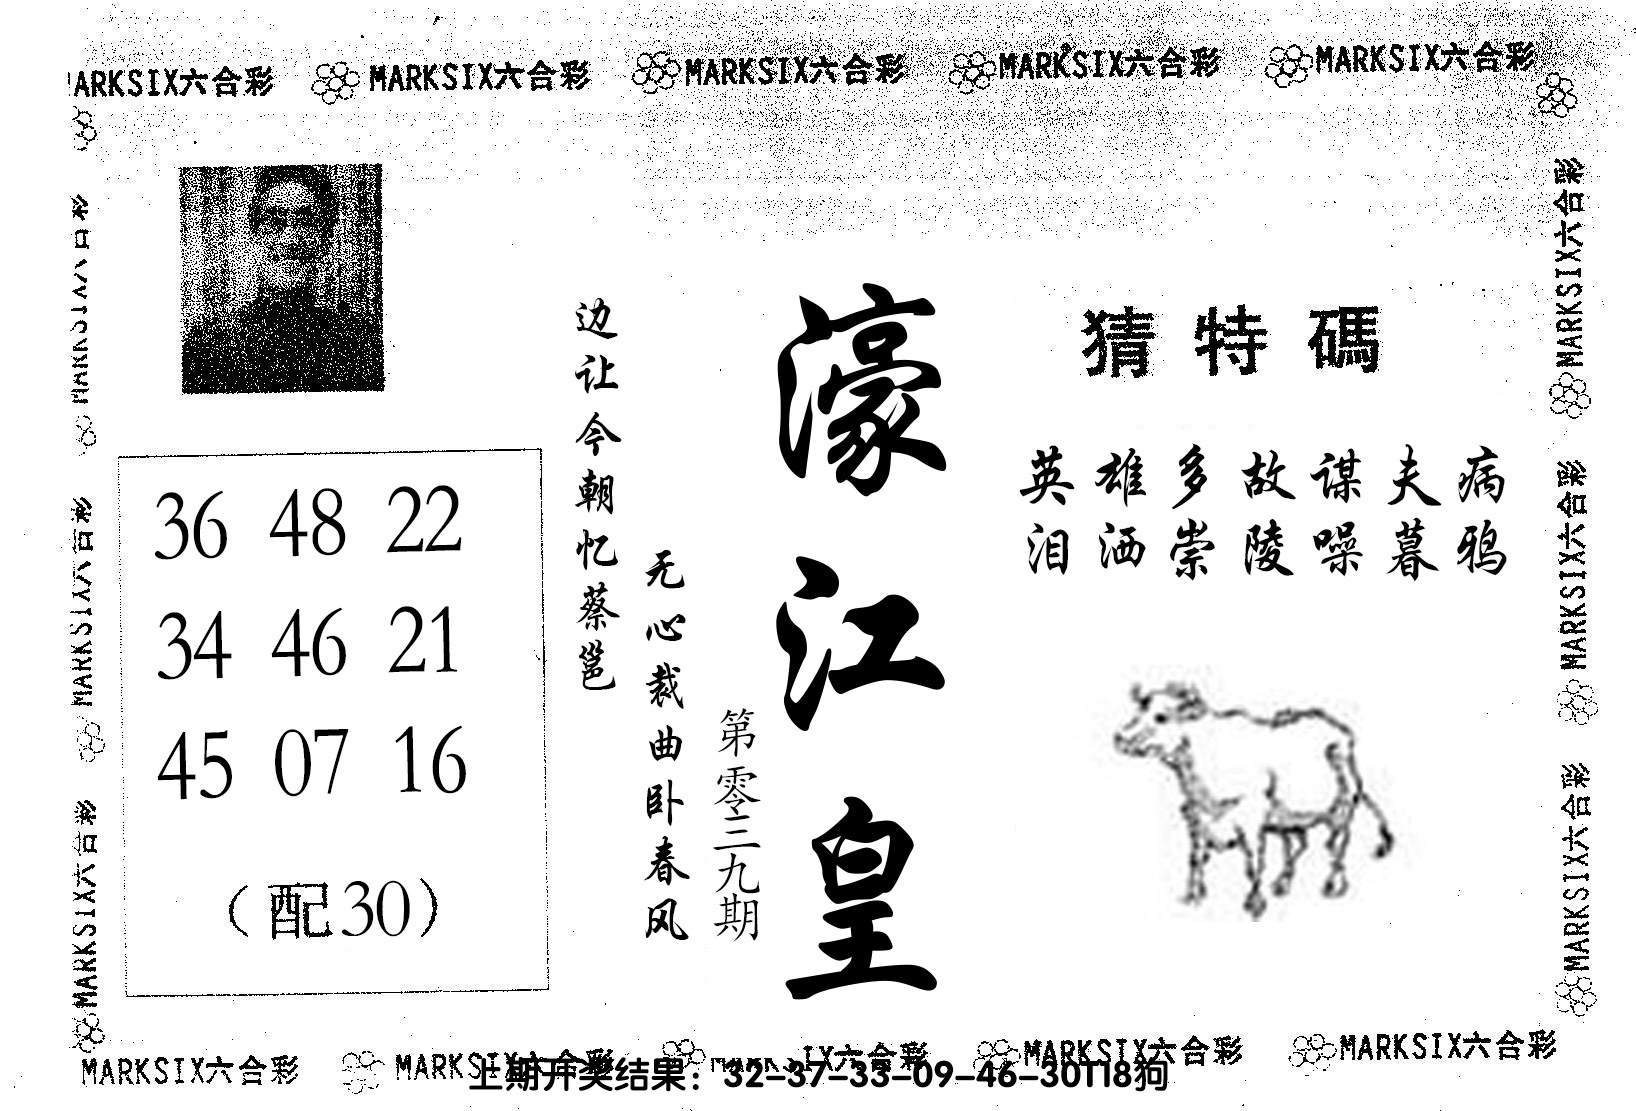 MARKSIX六合彩 MARKSIX六合彩 MARKSIX六合彩 MARKSIX六合彩 MARKSIX六合彩
猜特碼
英雄多故谋夫病
泪洒崇陵噪暮鸦
濠江皇
第零三九期
无心裁曲卧春风
边让今朝忆蔡邕
36 48 22
34 46 21
45 07 16
（配30）
MARKSIX六合彩
MARKSIX六合彩
MARKSIX六合彩
MARKSIX六合彩
MARKSIX六合彩
MARKSIX六合彩
MARKSIX六合彩 MARKSIX六合彩 MARKSIX六合彩 MARKSIX六合彩 MARKSIX六合彩
上期开奖结果：32-37-33-09-46-30T18狗